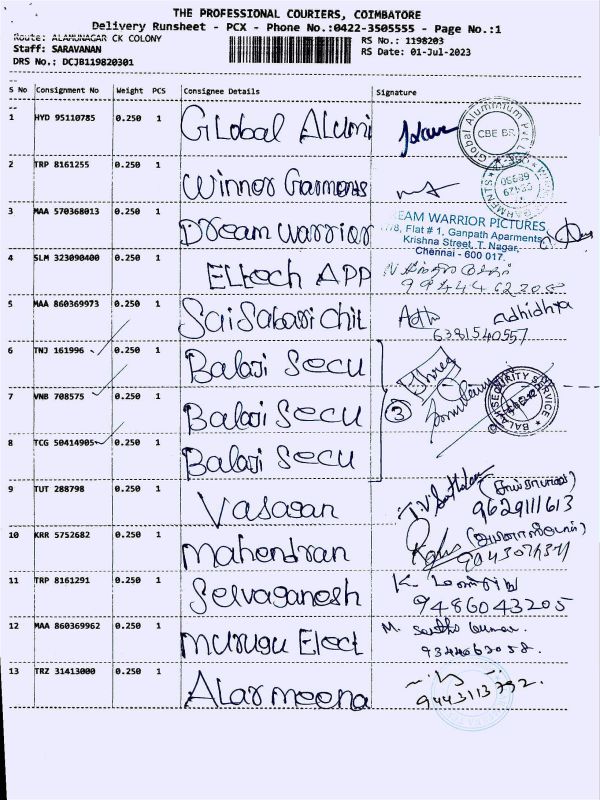 THE PROFESSIONAL COURIERS, COIMBATORE
Delivery Runsheet - PCX - Phone No.:0422-3505555 - Page No.:1
Route: ALAMUNAGAR CK COLONY
Staff: SARAVANAN
DRS No.: DCJB119820301
RS No.: 1198203
RS Date: 01-Jul-2023
S No Consignment No Weight PCS Consignee Details Signature
1 HYD 95110785 0.250 1 Global Alumi
Global Aluminium Pvt Ltd CBE BR
2 TRP 8161255 0.250 1 Winner Garments
3 MAA 570368013 0.250 1 Dream Warrior
EAM WARRIOR PICTURES
Flat # 1, Ganpath Apartments,
Krishna Street, T. Nagar,
Chennai - 600 017.
4 SLM 323090400 0.250 1 Eltech APP
5 MAA 860369973 0.250 1 Saisabari Chit
6381540557
6 TNJ 161996 0.250 1 Balaji Secu
7 VNB 708575 0.250 1 Balaji Secu
3
SECURITY SERVICE
8 TCG 50414905 0.250 1 Balaji Secu
9 TUT 288798 0.250 1 Vasagan
9629111613
10 KRR 5752682 0.250 1 Mahendran
11 TRP 8161291 0.250 1 Selvaganesh
9486043205
12 MAA 860369962 0.250 1 Murugu Elect
M.
13 TRZ 31413000 0.250 1 Alarmeena
9443113792.